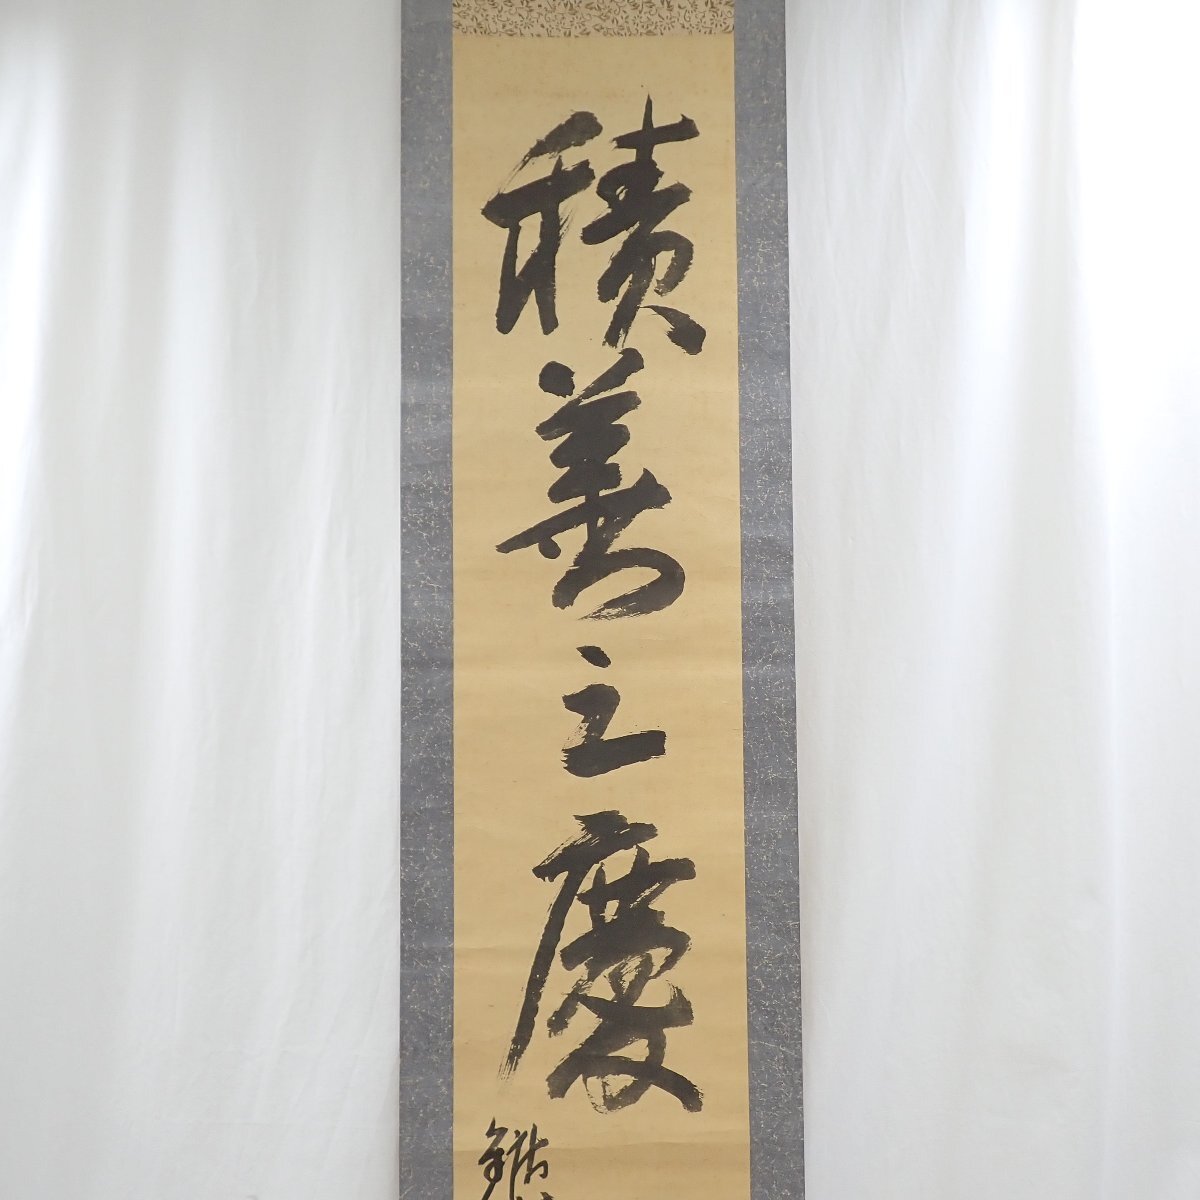 積善之慶